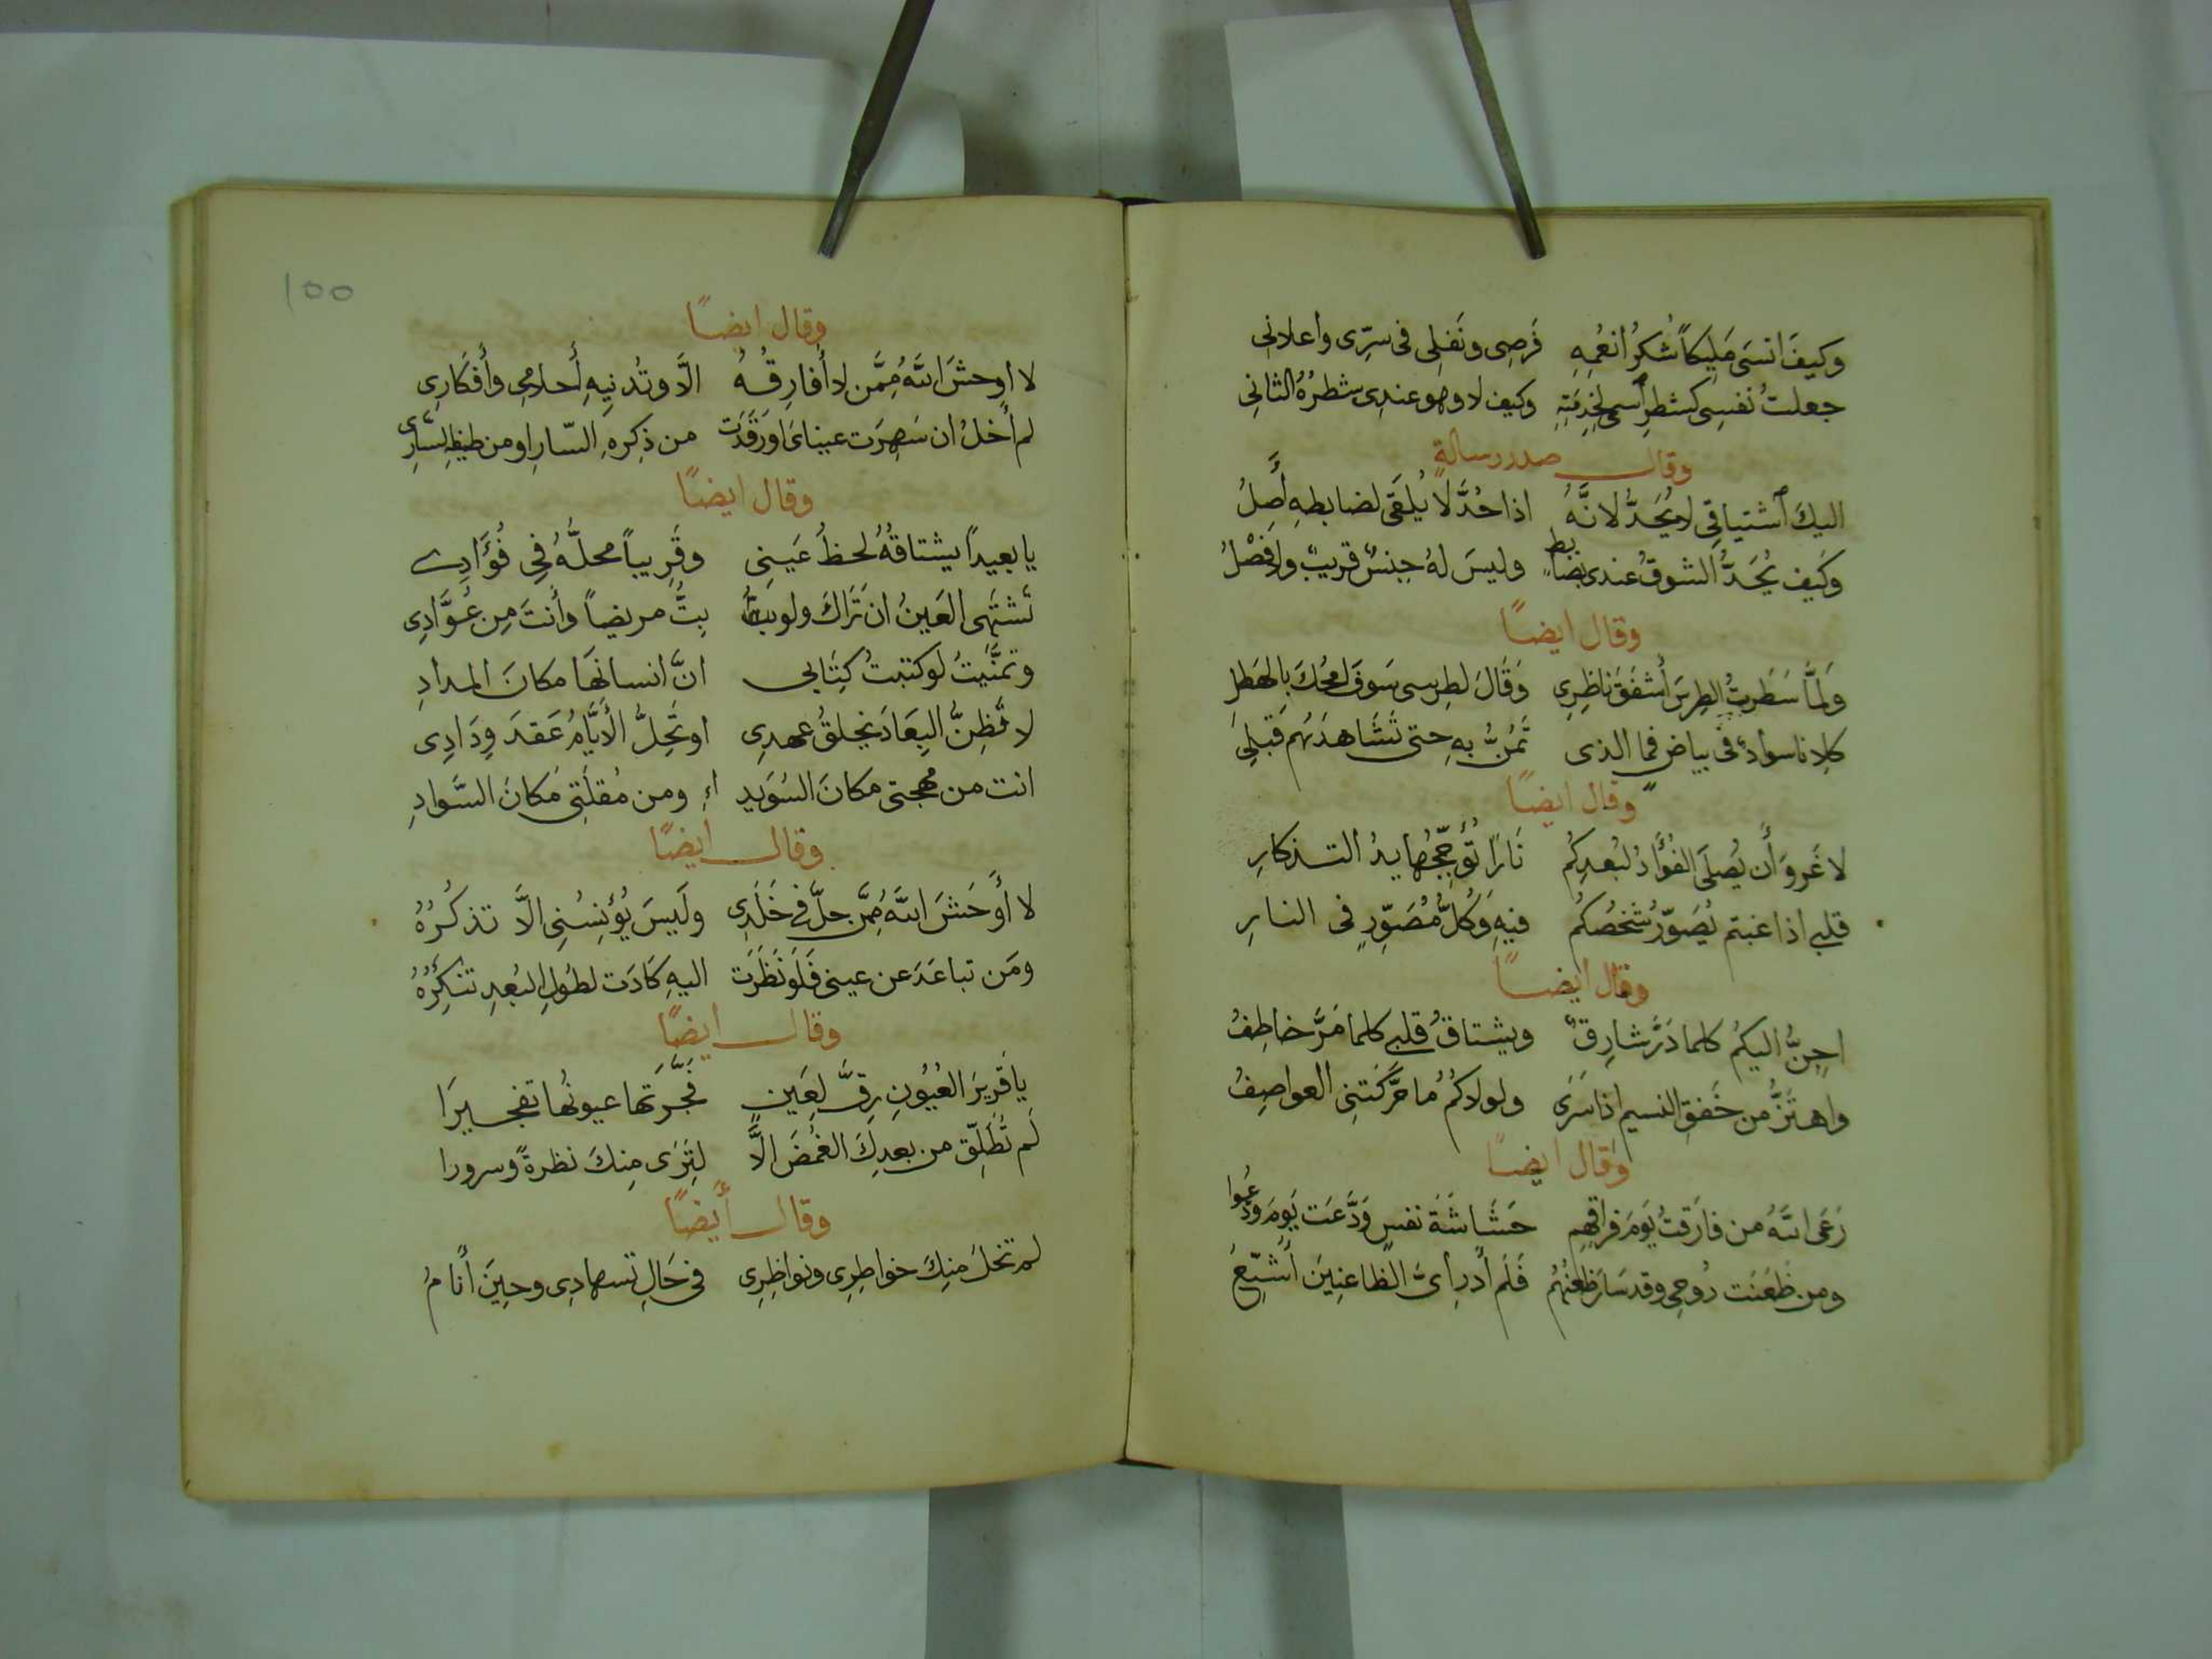 وَكيفَ انسَى مَلِيكاً شُكرُ انعُمِهِ فَرضِى ونَفلِى فى سِرِّى واعلانىِ
جعلتُ نفسِى كشطرِ اُسمى لخِدمَتِهِ وكيف لا وهو عندِى شطرُهُ الثانىِ
وقال صدر رسالةٍ
اليكَ اُشتياقِى لا يُحَدُّ لانَّهُ اذا حُدَّ لا يُلقَى لضابطهِ أَصلُ
وكَيف يُحَدُّ الشوقُ عندى بضابطٍ وليسَ لهُ جِنسٌ قريبٌ ولا فصْلُ
وقال ايضاً
وَلمَّا سَطَرتُ الطِرسَ أَشفَقَ ناظِرِى وَقَالَ لطِرسى سَوفَ امحُكَ بالهَطلِ
كلانا سوادٌ فى بياض فما الذى تَمُنُّ بهِ حتى تُشاهدَهُم قَبلِى
وقال ايضاً
لا غَروَ أَن يُصلَى الفُؤَادُ لبُعدِكُم نَارًا تُؤَجِّجُها يدُ التذكارِ
قلبى اذا غبتم يُصَوّرُ شخصُكُم فيهِ وَكُلُّ مُصَوّرٍ فى النارِ
وقال ايضاً
احِنُّ اليكُم كلما ذَرَّ شارِقٌ ويشتاقُ قلبى كلما مَرَّ خاطِفُ
واهتَزُّ من خَفقِ النسيم اذا سَرَى ولولاكمُ ما حَرَّكَتنِى العواصِفُ
وقال ايضاً
رَعَى اللهُ من فارَقتُ يَومَ فراقِهِم حَشَاشَةَ نفسٍ وَدَّعَت يَومَ ودَّعُوا
ومن ظَعَنَت رُوحِى وقد سَارَ ظعنُهُم فَلَم أَدرِ أىَّ الظاعِنِينَ أُشَيِّعُ
١٥٥
وقال ايضاً
لا اوحشَ اللهُ مِمَّن لا أُفارِقُهُ الَّا وتُدنِيهِ أَحلامِى وأَفكَارِى
لم أَخلُ ان سَهِرَت عيناىَ اورَقَدَت من ذِكرهِ السّارِ او من طيفِهِ السارِى
وقال ايضاً
يا بعيداً يشتاقهُ لحظُ عَينِى وقَرِيباً محلَّهُ فِى فُؤَادِى
تَشتَهِى العَينُ ان تَرَاكَ ولو بتُّ بِتُّ مريضاً وأَنتَ مِن عُوَّادِى
وتمنَّيتُ لو كتبتُ كِتَابى انَّ انسانَهَا مكانَ المدادِ
لا تَظِنُّ البِعَادَ يخلقُ عهدِى او تَحِلُّ الأَيَّامُ عَقدَ وِدَادِى
انت من مهجتى مكانَ السُوَيدِ اءِ ومن مُقلَتِى مكانَ السَّوادِ
وقال ايضاً
لا أَوحَشَ اللهُ مِمَّن حلَّ فى خَلَدِى ولَيسَ يُؤنِسُنِى الَّا تذكُرُهُ
ومَن تباعَدَ عن عينى فَلَو نَظَرَت اليهِ كَادَت لطُولِ البُعدِ تنكِرُهُ
وقال ايضاً
يا قَريرَ العُيُونِ رِقَّ لِعَينٍ فَجَّرَتها عيونُها تفجيرَا
لَم تُطَلِّق من بعدِكَ الغُمضَ الَّا لِتَرَى مِنكَ نظرةً وسرورا
وقال أَيضاً
لم تخلُ منِكَ خواطِرِى ونواظِرِى فى حَالِ تسهادِى وحِينَ أَنامُ